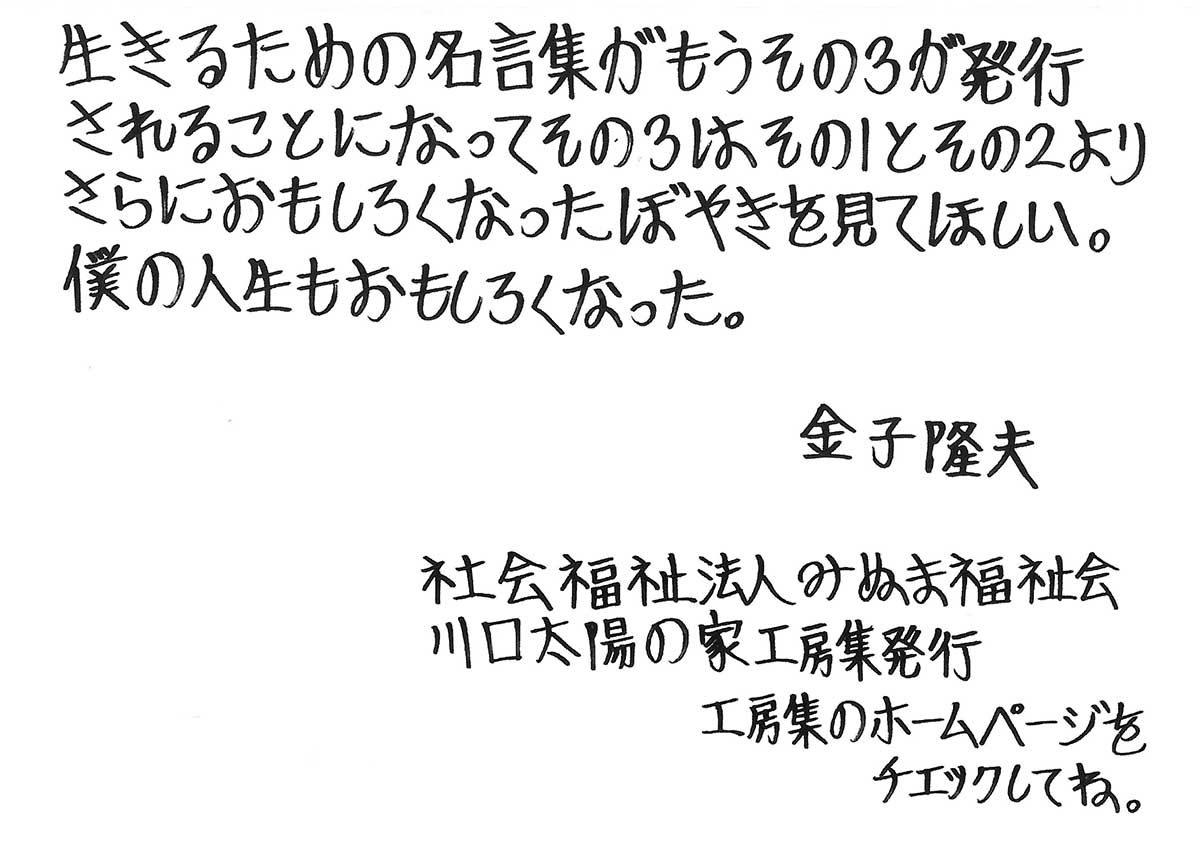 生きるための名言集がもうその3が発行
されることになってその3はその1とその2より
さらにおもしろくなったぼやきを見てほしい。
僕の人生もおもしろくなった。
金子隆夫
社会福祉法人みぬま福祉会
川口太陽の家工房集発行
工房集のホームページを
チエックしてね。